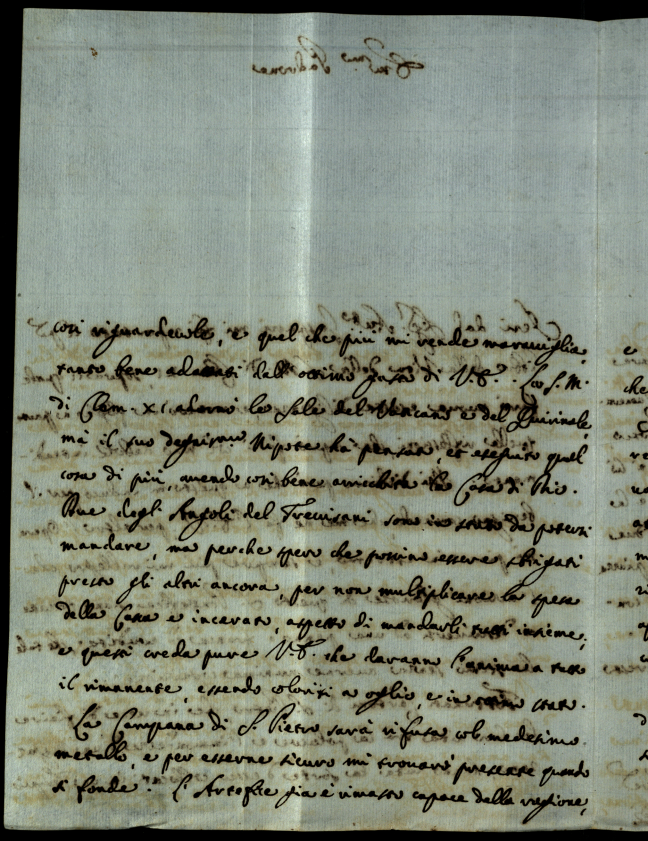 così riguardevole, e quel che più mi rende maraviglia,
tanto bene adattati dall' ottimo gusto di V.E. La S. M.
di Clem. XI adornò le Sale del Vaticano e del Quirinale,
mà il suo degniss.mo Nipote hà pensato, et eseguito quel
cosa di più, avendo così bene arricchita la Casa di Dio.
Due degli Angoli del Trevisani sono in stato da potersi
mandare, ma perche spero che possino essere sbrigati
presto gli altri ancora, per non multiplicare la spesa
della Cassa e incerato, aspetto di mandarli tutti insieme,
e questi creda pure V.E. che daranno l'anima a tutto
il rimanente, essendo coloriti a oglio, e in ottimo stato.
La Campana di S. Pietro sarà rifusa col medesimo
metallo, e per esserne sicuro mi trovarò presente quando
si fonde. L'Artefice già è rimasto capace della ragione,